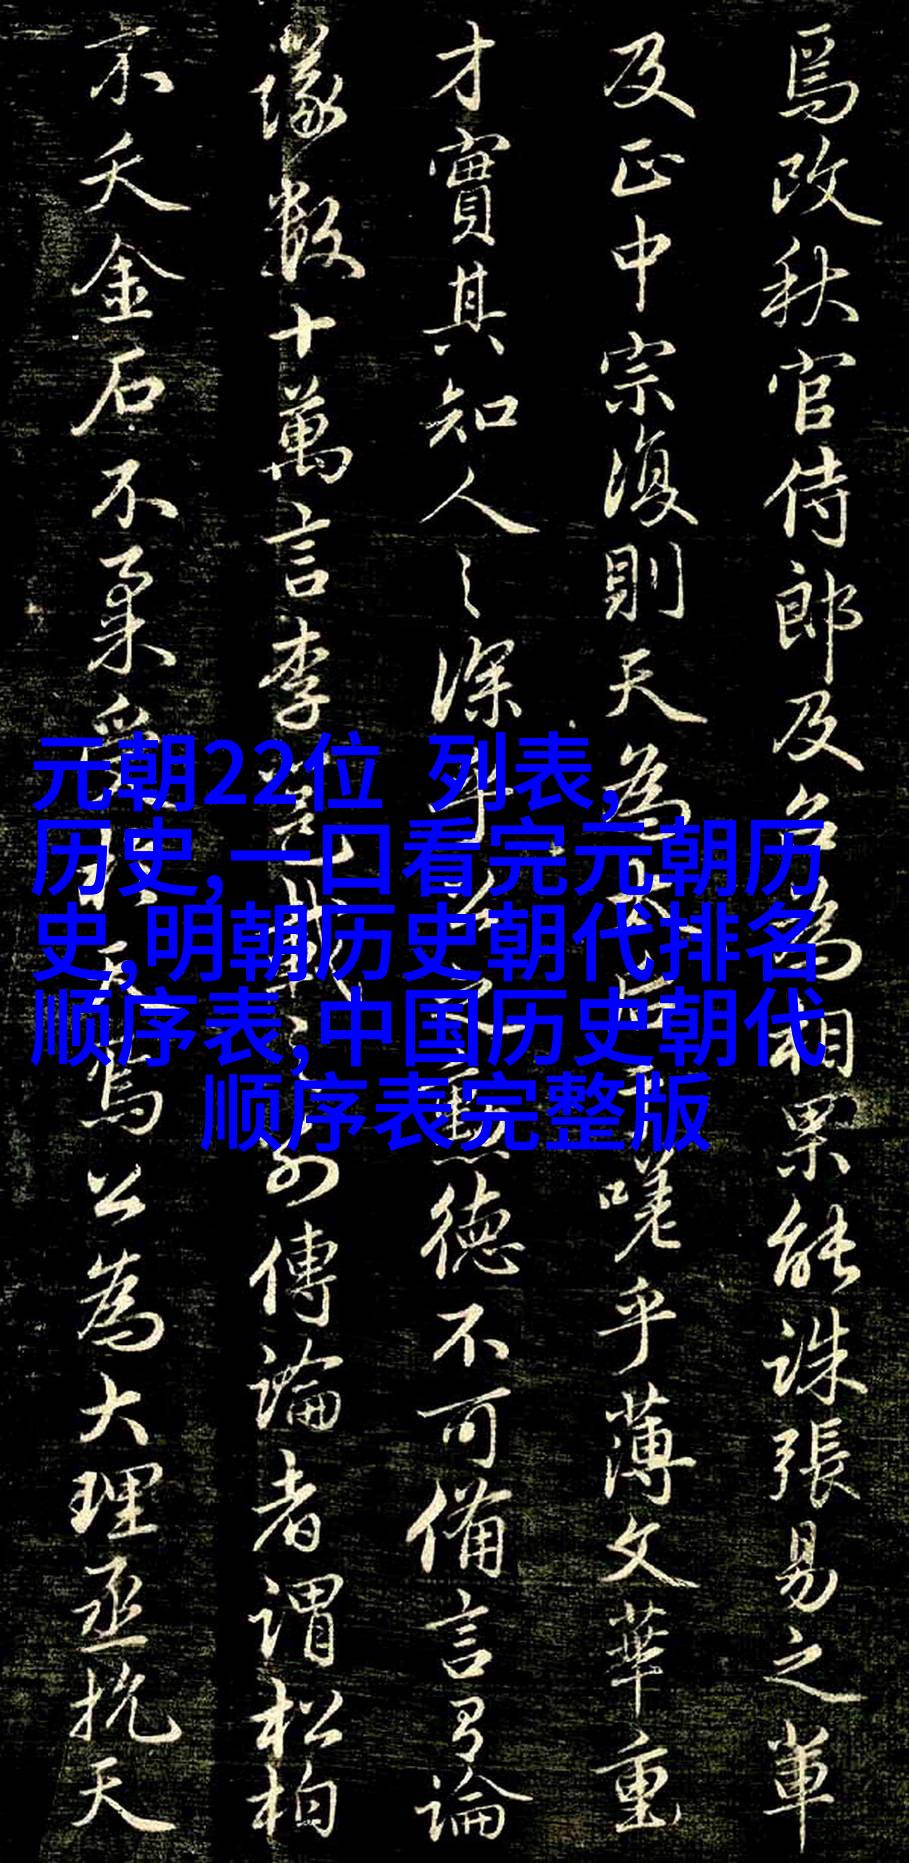 焉改秋官侍郎及召為相果能誅張易之輩
反正中宗復則天為嗟乎薄文華重
才實其知人之深乎勳德不可備言有論
數十萬言李邕載之別傳論者謂松柏
不夭金石不柔受於天焉公為大理丞抗天
元朝22位 列表,
历史,一口看完元朝历
史,明朝历史朝代排名
顺序表,中国历史朝代
顺序表完整版